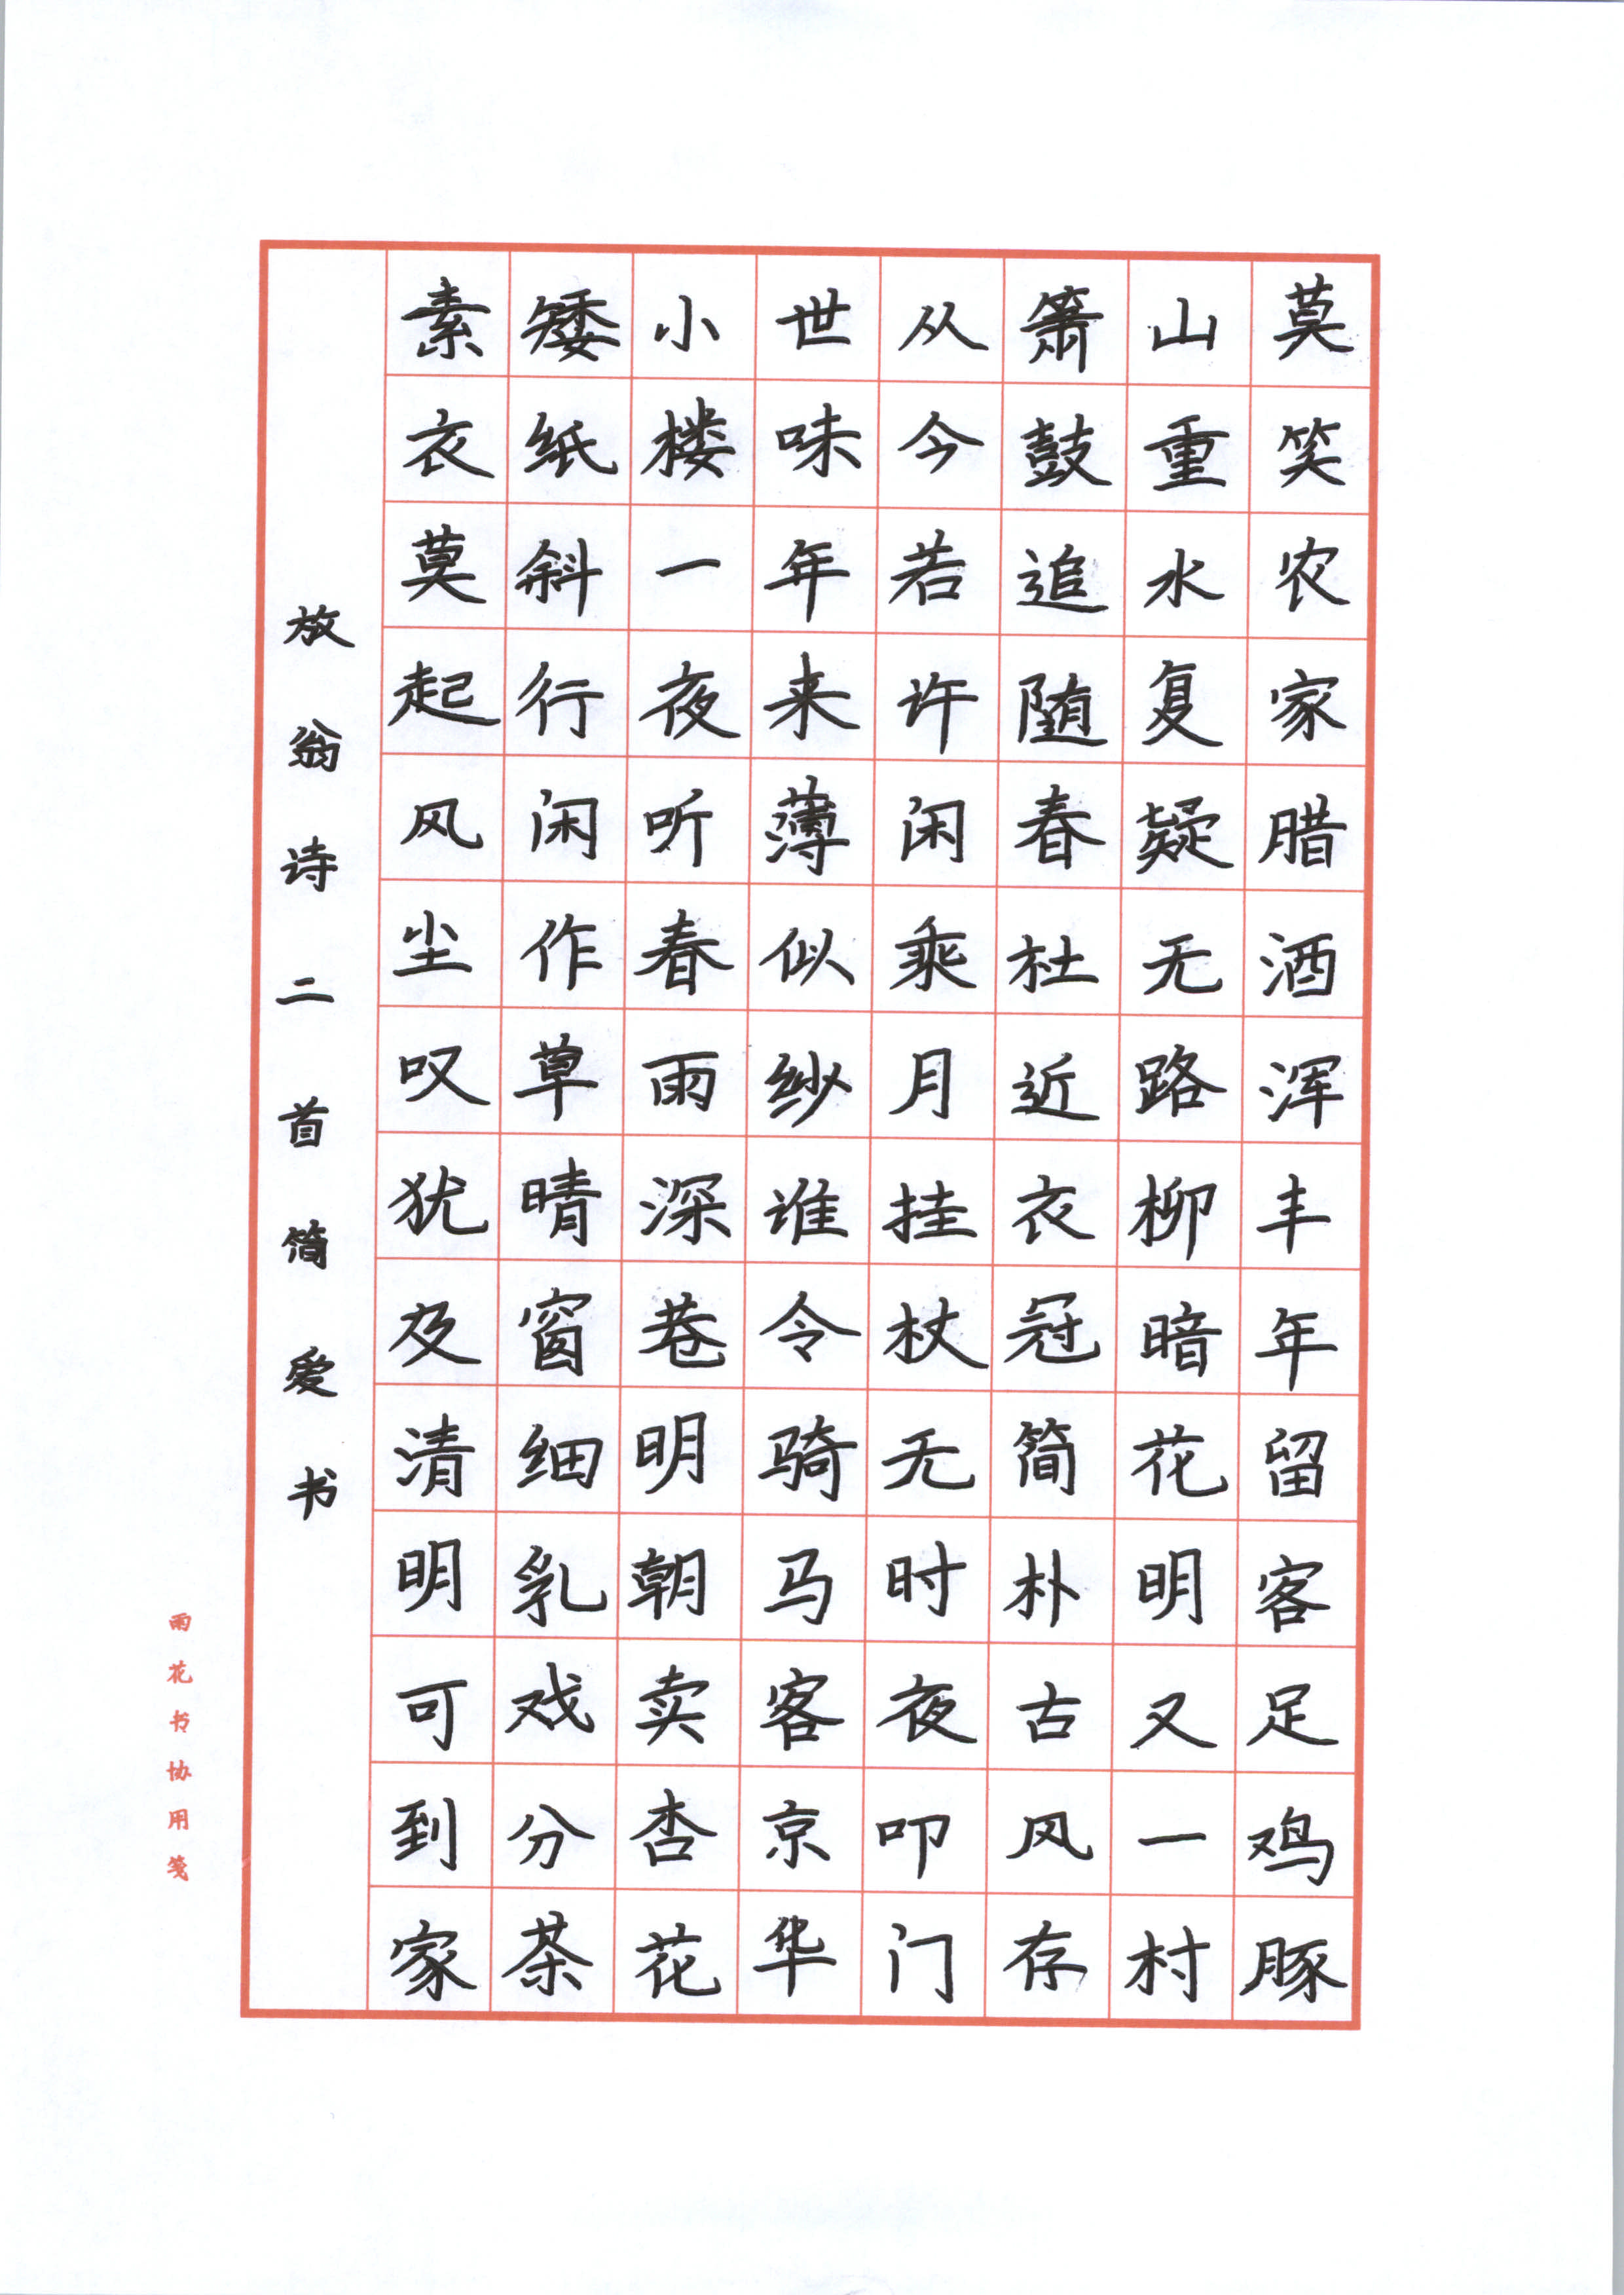 莫笑农家腊酒浑丰年留客足鸡豚
山重水复疑无路柳暗花明又一村
箫鼓追随春社近衣冠简朴古风存
从今若许闲乘月拄杖无时夜叩门
世味年来薄似纱谁令骑马客京华
小楼一夜听春雨深巷明朝卖杏花
矮纸斜行闲作草晴窗细乳戏分茶
素衣莫起风尘叹犹及清明可到家
放翁诗二首简爱书
雨花书协用笺